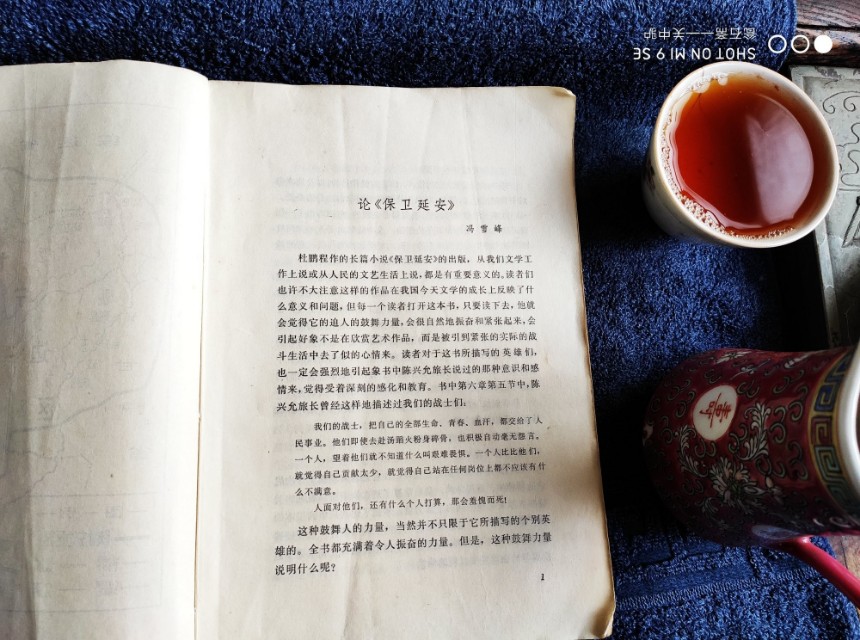 论《保卫延安》
冯雪峰
杜鹏程作的长篇小说《保卫延安》的出版，从我们文学工
作上说或从人民的文艺生活上说，都是有重要意义的。读者们
也许不大注意这样的作品在我国今天文学的成长上反映了什
么意义和问题，但每一个读者打开这本书，只要读下去，他就
会觉得它的迫人的鼓舞力量，会很自然地振奋和紧张起来，会
引起好象不是在欣赏艺术作品，而是被引到紧张的实际的战
斗生活中去了似的心情来。读者对于这书所描写的英雄们，
也一定会强烈地引起象书中陈兴允旅长说过的那种意识和感
情来，觉得受着深刻的感化和教育。书中第六章第五节中，陈
兴允旅长曾经这样地描述过我们的战士们：
我们的战士，把自己的全部生命、青春、血汗，都交给了人
民事业。他们即使去赴汤蹈火粉身碎骨，也积极自动毫无怨言。
一个人，望着他们就不知道什么叫艰难畏惧。一个人比比他们，
就觉得自己贡献太少，就觉得自己站在任何岗位上都不应该有什
么不满意。
人面对他们，还有什么个人打算，那会羞愧而死！
这种鼓舞人的力量，当然并不只限于它所描写的个别英
雄的。全书都充满着令人振奋的力量。但是，这种鼓舞力量
说明什么呢？
1
SHOT ON MI 9 SE
瓷石斋——关中驴